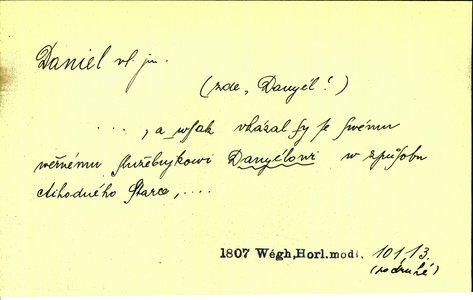 Daniel vl. jm.
(zde „Danyél“!)
...., a wssak vkázal sy se swému
wěrnému služebnykowi Danyélowi w způsobu
ctihodného Starce, ....
1807 Wégh,Horl.modl. 101,13.
(podruhé)